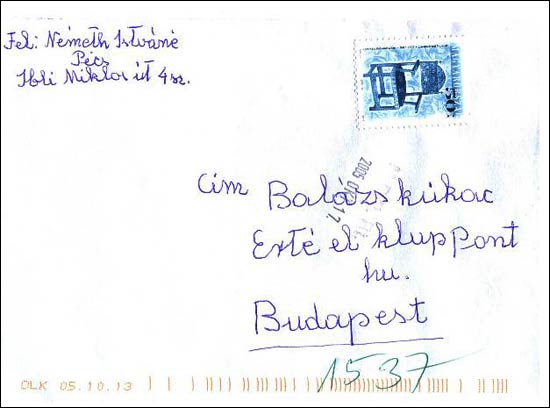 Fel: Németh Istváné
Pécs
Ibli Miklos út 4 sz.
50
2005 017.
cím Balázs kukac
Exté el klup Pont
hu.
Budapest
1537
OLK 05.10.13